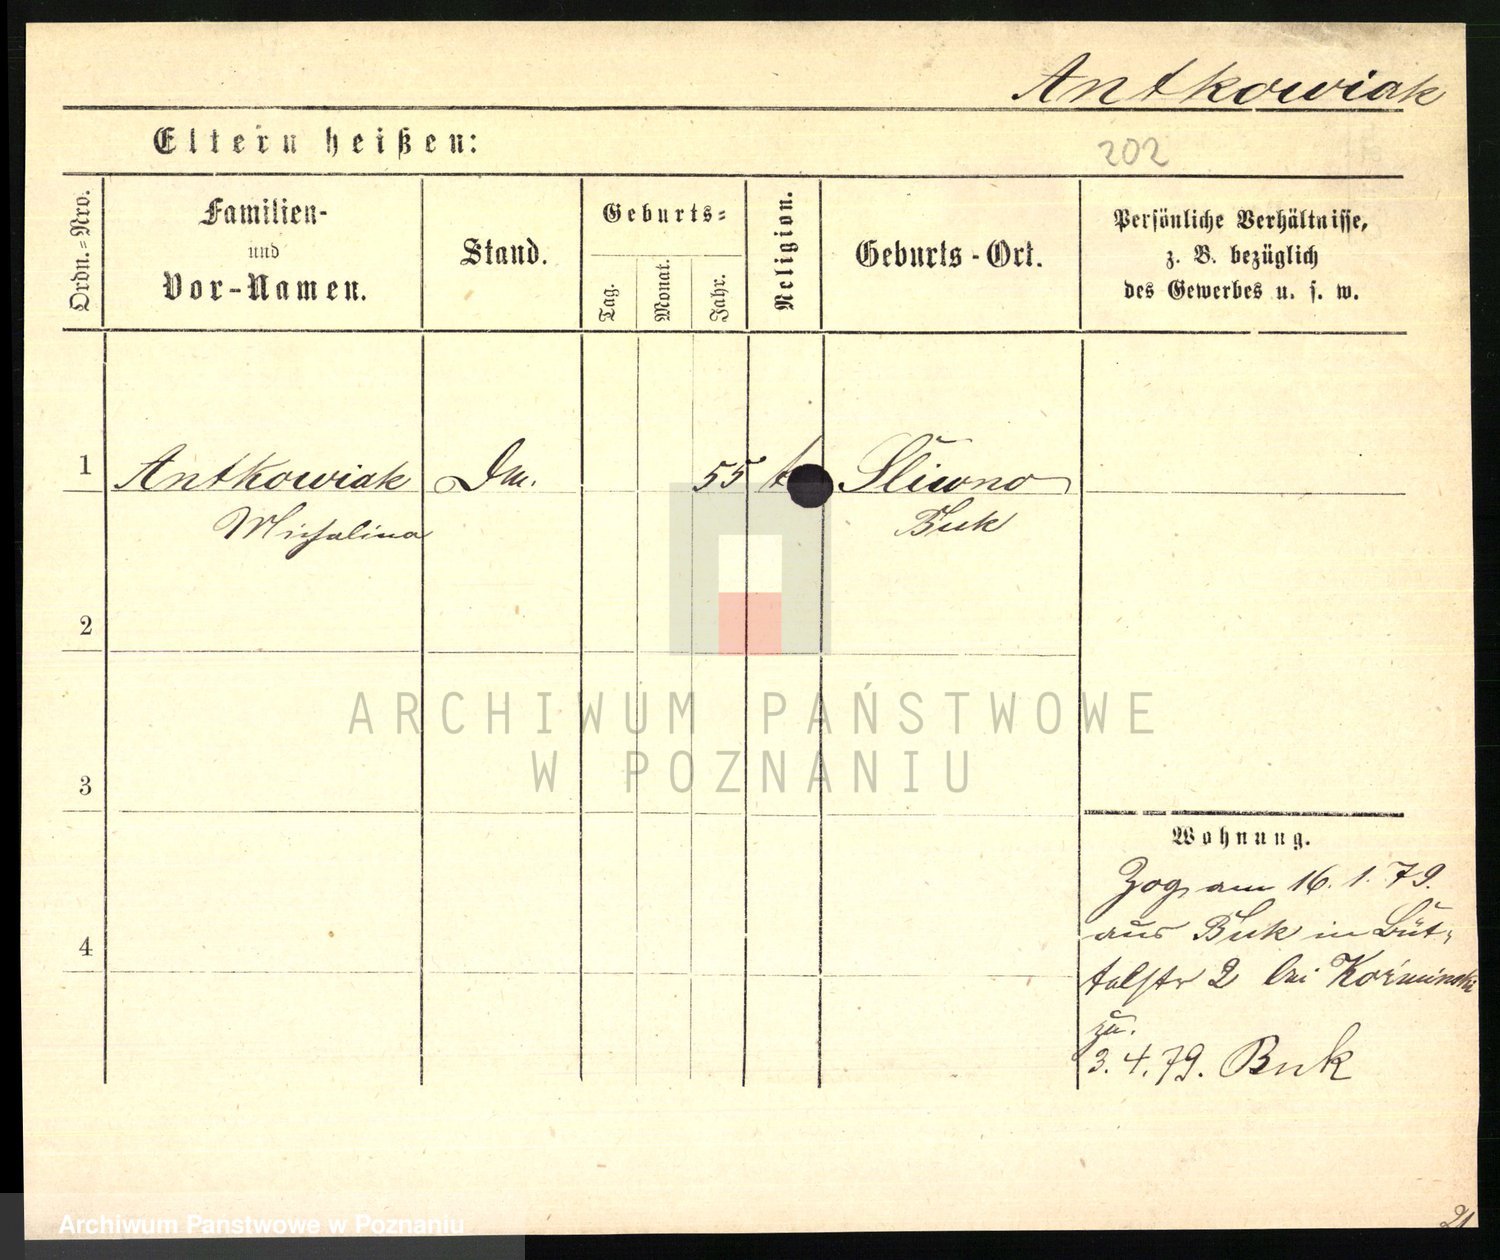 Antkowiak
Eltern heißen:
202
Ordn.=Nro.
Familien-
und
Vor-Namen.
Stand.
Geburts=
Tag.
Monat.
Jahr.
Religion.
Geburts-Ort.
Persönliche Verhältnisse,
z. B. bezüglich
des Gewerbes u. s. w.
1 Antkowiak Dm. 55 k Śliwno
Michalina Buk
2
3
4
ARCHIWUM PAŃSTWOWE
W POZNANIU
Wohnung.
Zog am 16. 1. 79.
aus Buk in Büt-
telstr 2 bei Koźminski
zu.
3. 4. 79. Buk
Archiwum Panstwowe w Poznaniu